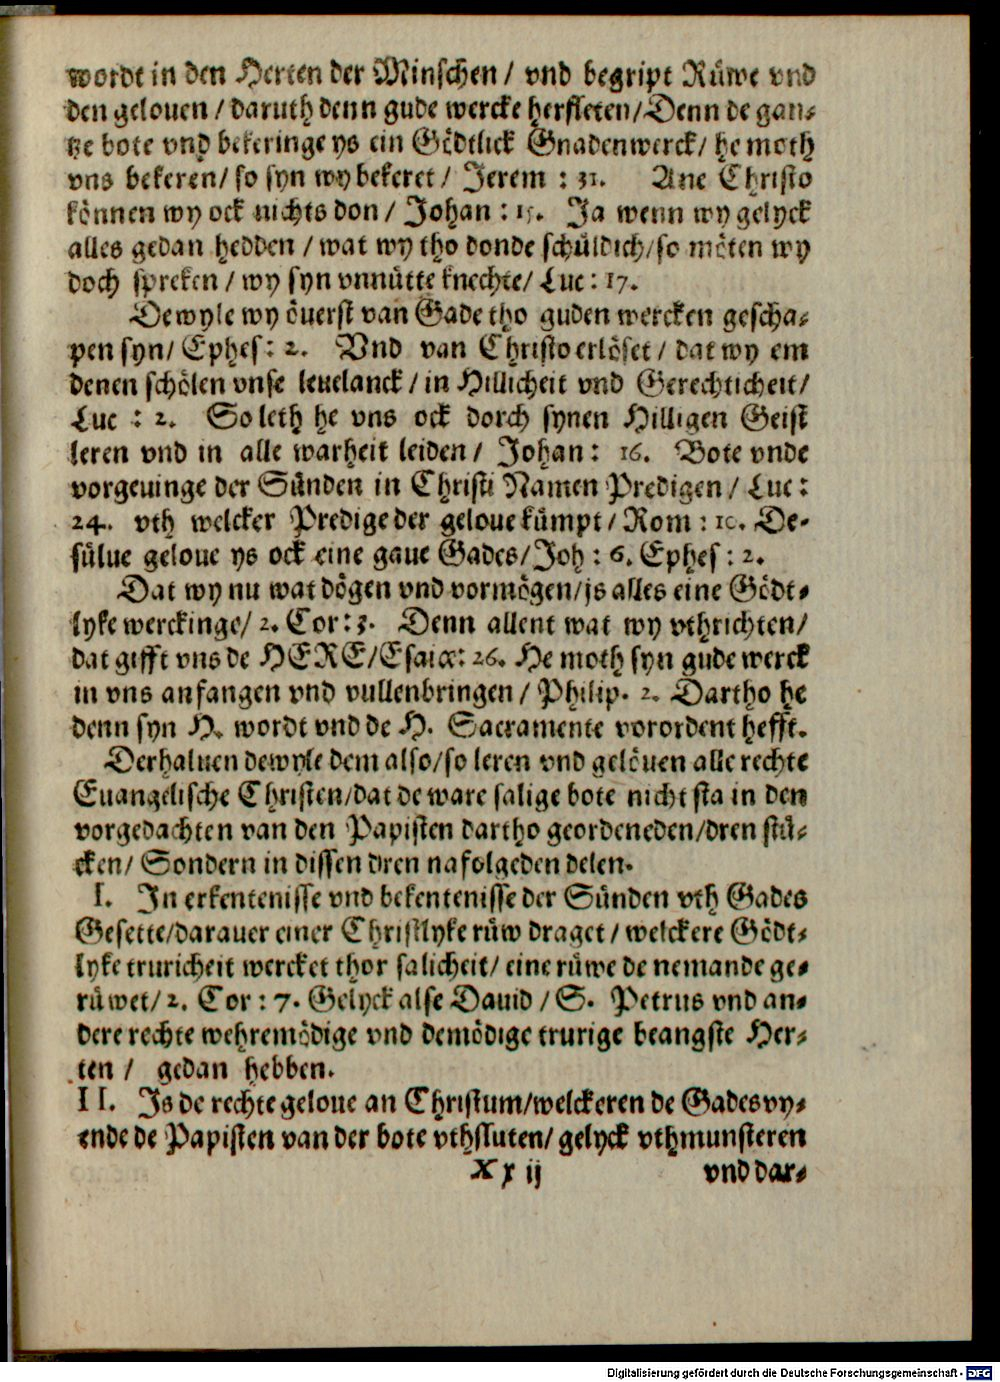 wordt in den Herten der Minschen / vnd begript Rüwe vnd
den gelouen / daruth denn gude wercke herfleten / Denn de gan⸗
tze bote vnd bekeringe ys ein Gödtlick Gnadenwerck / he moth
vns bekeren / so syn wy bekeret / Jerem : 31. Ane Christo
können wy ock nichts don / Johan : 15. Ja wenn wy gelyck
alles gedan hedden / wat wy tho donde schüldich / so möten wy
doch spreken / wy syn vnnütte knechte / Luc : 17.
Dewyle wy öuerst van Gade tho guden wercken gescha⸗
pen syn / Ephes : 2. Vnd van Christo erlöset / dat wy em
denen schölen vnse leuelanck / in Hillicheit vnd Gerechticheit /
Luc : 2. So leth he vns ock dorch synen Hilligen Geist
leren vnd in alle warheit leiden / Johan : 16. Bote vnde
vorgeuinge der Sünden in Christi Namen Predigen / Luc :
24. vth welcker Predige der geloue kümpt / Rom : 10. De⸗
sülue geloue ys ock eine gaue Gades / Joh : 6. Ephes : 2.
Dat wy nu wat dögen vnd vormögen / js alles eine Gödt⸗
lyke werckinge / 2. Cor : 3. Denn allent wat wy vthrichten /
dat gifft vns de HERE / Esaiæ : 26. He moth syn gude werck
in vns anfangen vnd vullenbringen / Philip. 2. Dartho he
denn syn H. wordt vnd de H. Sacramente vorordent hefft.
Derhaluen dewyle dem also / so leren vnd gelöuen alle rechte
Euangelische Christen / dat de ware salige bote nicht sta in den
vorgedachten van den Papisten dartho geordeneden / dren stü⸗
cken / Sondern in dissen dren nafolgeden delen.
I. In erkentenisse vnd bekentenisse der Sünden vth Gades
Gesette / darauer einer Christlyke rüw draget / welckere Gödt⸗
lyke truricheit wercket thor salicheit / eine rüwe de nemande ge⸗
rüwet / 2. Cor : 7. Gelyck alse Dauid / S. Petrus vnd an⸗
dere rechte wehremödige vnd demödige trurige beangste Her⸗
ten / gedan hebben.
II. Js de rechte geloue an Christum / welckeren de Gades vy⸗
ende de Papisten van der bote vthsluten / gelyck vthmunsteren
Xx ij vnd dar⸗
Digitalisierung gefördert durch die Deutsche Forschungsgemeinschaft - DFG